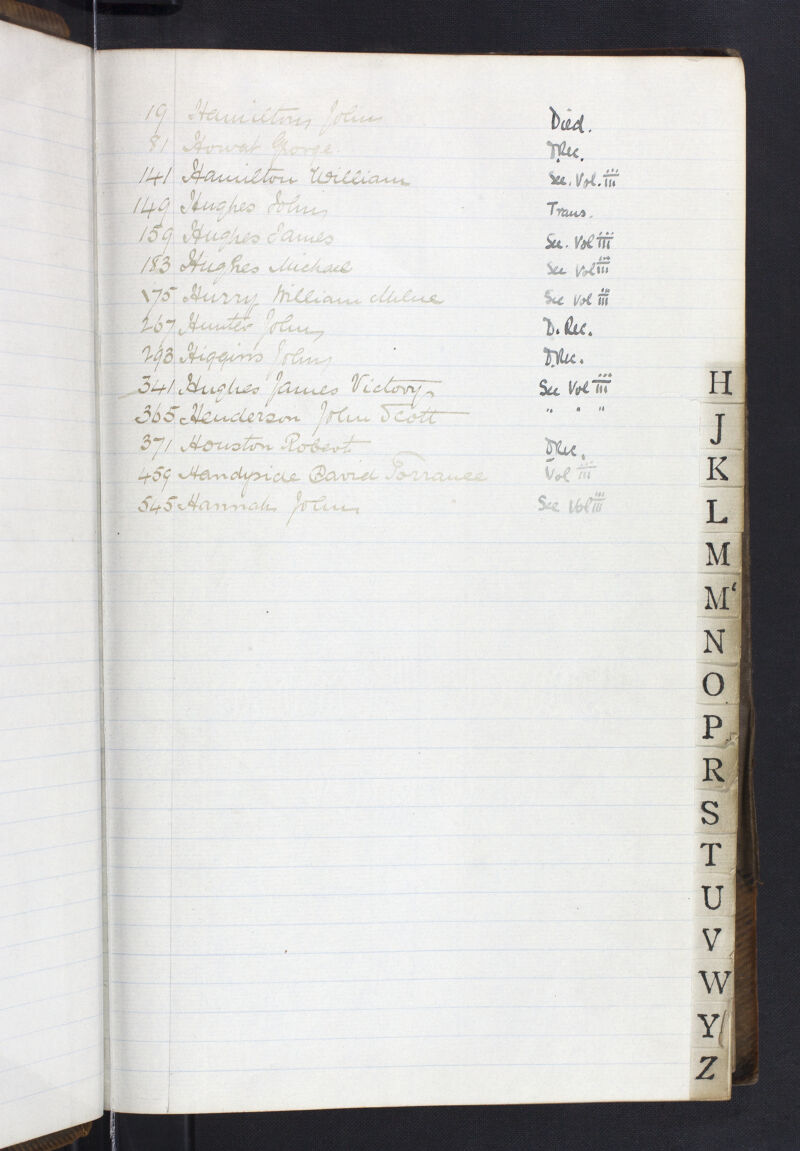 19 Hamilton John Died.
81 Howat George. D.Rec.
141 Hamilton William See. Vol. III
149 Hughes John Trans.
159 Hughes James See. Vol III
183 Hughes Michael See Vol III
175 Hurry William Milne See Vol III
267 Hunter John D. Rec.
293 Higgins John D.Rec.
341 Hughes James Victory See Vol III
365 Henderson John Scott " " "
371 Houston Robert D.Rec.
459 Handyside David Torrance Vol III
545 Hannah John See Vol III
H
J
K
L
M
M‘
N
O
P
R
S
T
U
V
W
Y
Z